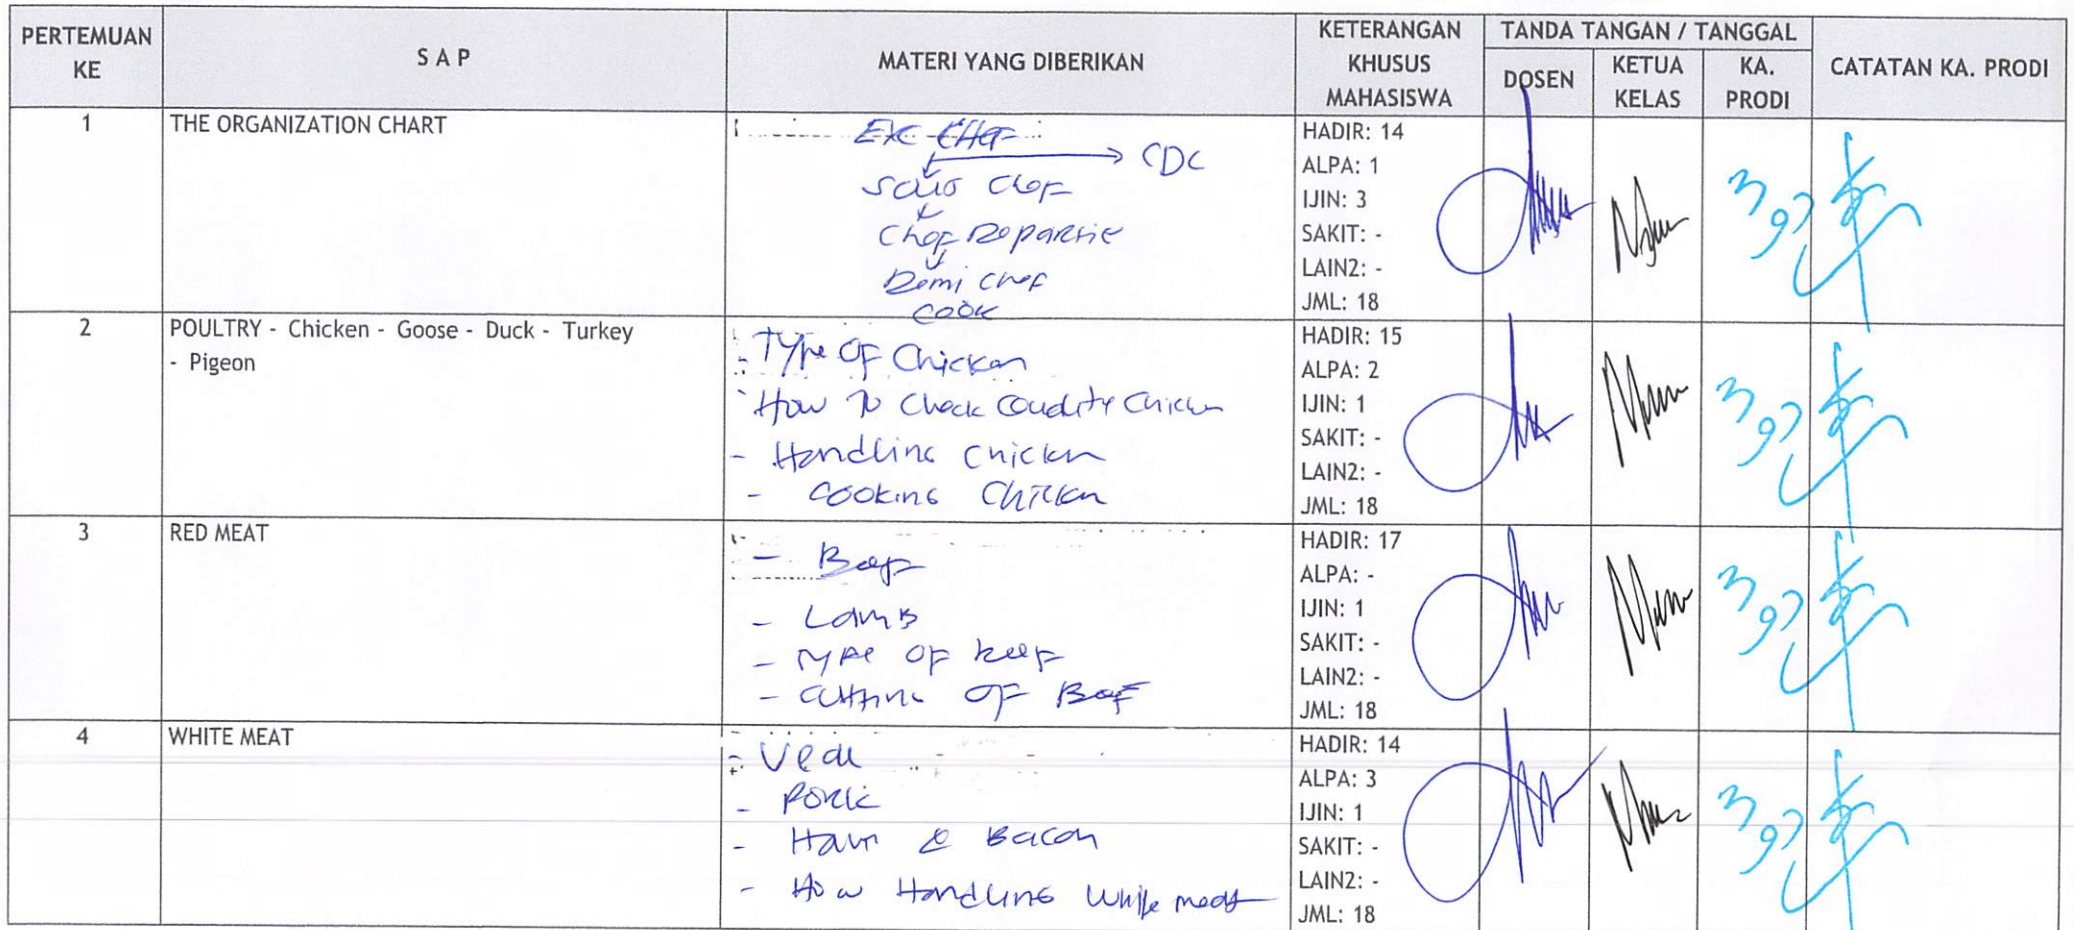 PERTEMUAN KE
S A P
MATERI YANG DIBERIKAN
KETERANGAN KHUSUS MAHASISWA
TANDA TANGAN / TANGGAL
DOSEN
KETUA KELAS
KA. PRODI
CATATAN KA. PRODI
1
THE ORGANIZATION CHART
Exc CHef
→ CDC
Chef
Demi Chef
COOK
HADIR: 14
ALPA: 1
IJIN: 3
SAKIT: -
LAIN2: -
JML: 18
2
POULTRY - Chicken - Goose - Duck - Turkey
- Pigeon
- Type OF Chicken
How To Check Chicken
- Handling Chicken
- Cooking Chicken
HADIR: 15
ALPA: 2
IJIN: 1
SAKIT: -
LAIN2: -
JML: 18
3
RED MEAT
- Beef
- Lamb
- Type OF beef
- Cutting OF Beef
HADIR: 17
ALPA: -
IJIN: 1
SAKIT: -
LAIN2: -
JML: 18
4
WHITE MEAT
- Veal
- Pork
- Ham & Bacon
- How Handling White meat
HADIR: 14
ALPA: 3
IJIN: 1
SAKIT: -
LAIN2: -
JML: 18